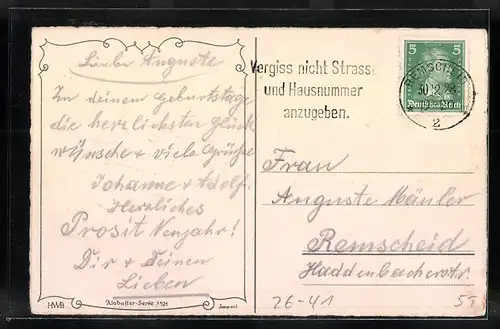 Liebe Auguste
Zu deinem Geburtstage
die herzlichsten Glück
wünsche + viele Grüße
Johanne + Adolf.
Herzliches
Prosit Neujahr!
Dir + Deinen
Lieben
HWB
Alabaster-Serie
Vergiss nicht Strasse
und Hausnummer
anzugeben.
5 5
Deutsches Reich
REMSCHEID
30.12.28
2
Frau
Auguste Mäuler
Remscheid
Haddenbacherstr.
26-41